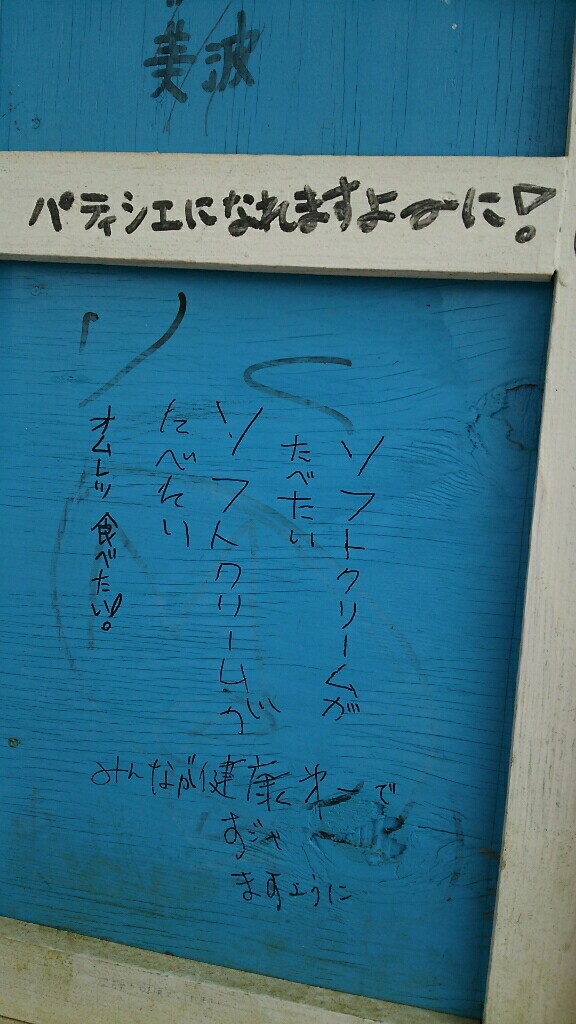 美波
パティシエになれますよーに!
ソフトクリームが
たべたい
ソフトクリームが
たべたい
オムレツ食べたい!
みんなが健康で
ますように